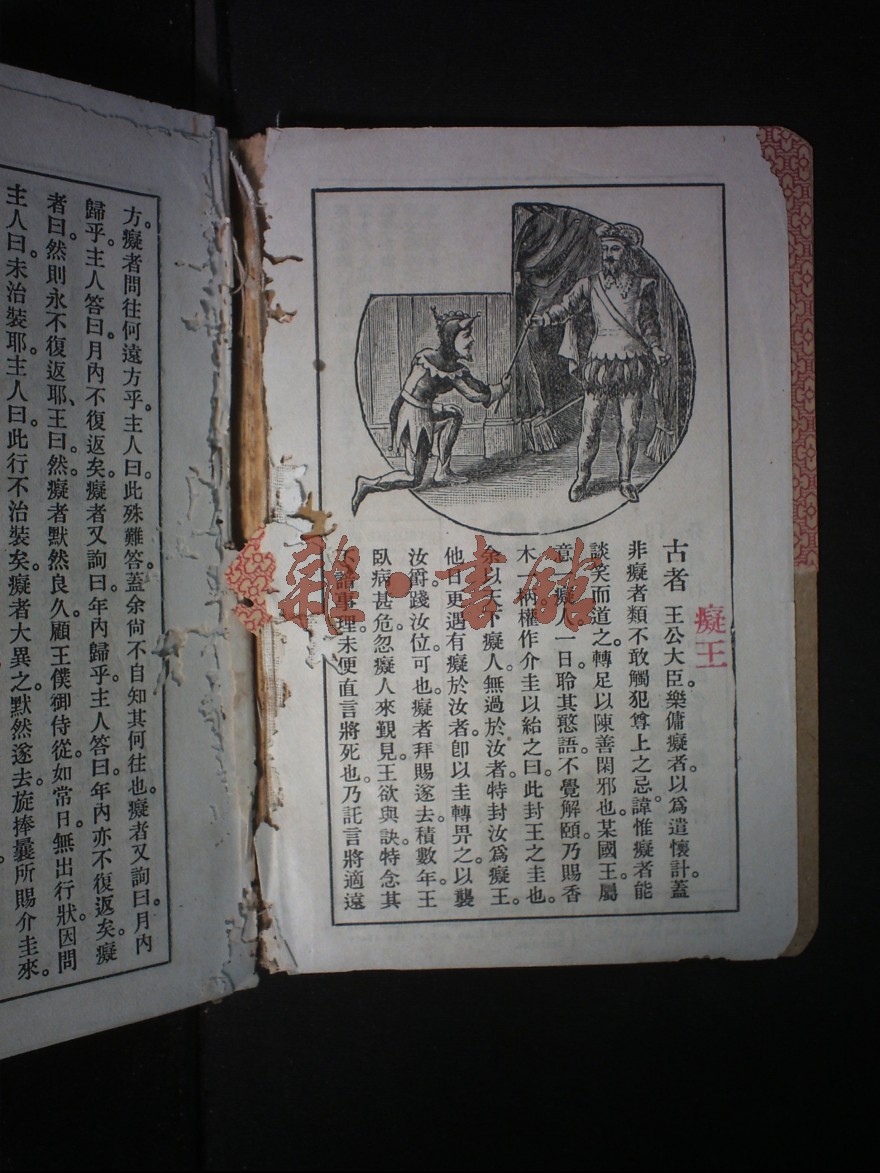 癡王
古者王公大臣。樂傭癡者。以爲遣懷計。蓋
非癡者類不敢觸犯尊上之忌。諱惟癡者能
談笑而道之。轉足以陳善閑邪也。某國王。屬
意一癡人。一日聆其憨語。不覺解頤。乃賜香
木一柄。權作介圭以紿之曰。此封王之圭也。
余以天下癡人。無過於汝者。特封汝爲癡王。
他日更遇有癡於汝者。卽以圭轉畀之。以襲
汝爵。踐汝位可也。癡者拜賜遂去。積數年。王
臥病甚危。忽癡人來覲見。王欲與訣。特念其
諳事理。未便直言將死也。乃託言將適遠
方。癡者問往何遠方乎。主人曰。此殊難答。蓋余尙不自知其何往也。癡者又詢曰。月內
歸乎。主人答曰。月內不復返矣。癡者又詢曰。年內歸乎。主人答曰。年內亦不復返矣。癡
者曰。然則永不復返耶、王曰。然。癡者默然良久。顧王僕御侍從。如常日。無出行狀。因問
主人曰。未治裝耶。主人曰。此行不治裝矣。癡者大異之。默然遂去。旋捧曩所賜介圭來。
雜·書館